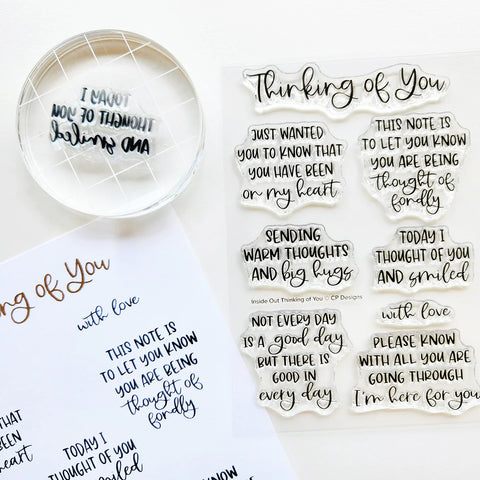 TODAY I
THOUGHT OF YOU
AND smiled
Thinking of You
JUST WANTED
YOU TO KNOW THAT
YOU HAVE BEEN
on my heart
THIS NOTE IS
TO LET YOU KNOW
YOU ARE BEING
thought of
fondly
SENDING
WARM THOUGHTS
AND big hugs
TODAY I
THOUGHT OF YOU
AND smiled
Inside Out Thinking of You © CP Designs
with love
NOT EVERY DAY
IS A good day
BUT THERE IS
GOOD IN
every day
PLEASE KNOW
WITH ALL YOU ARE
GOING THROUGH
I'm here for you
king of You
with love
THIS NOTE IS
TO LET YOU KNOW
YOU ARE BEING
thought of
fondly
THAT
BEEN
heart
TODAY I
THOUGHT OF YOU
smiled
KNOW